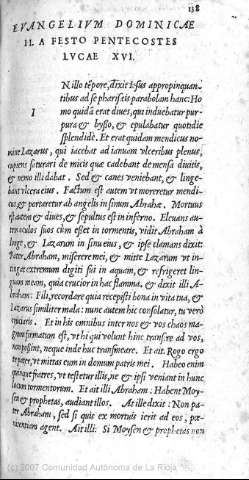 138
EVANGELIVM DOMINICAE
II. A FESTO PENTECOSTES
LVCAE XVI.
IN illo tẽpore, dixit Iesus appropinquan-
tibus ad se pharisæis parabolam hanc: Ho
mo quidã erat diues, qui induebatur pur-
pura & bysso, & epulabatur quotidie
splendidè. Et erat quidam mendicus no-
mine Lazarus, qui iacebat ad ianuam vlceribus plenus,
cupiens saturari de micis quæ cadebant de mensa diuitis,
& nemo illi dabat. Sed & canes veniebant, & linge-
bant vlcera eius. Factum est autem vt moreretur mendi-
cus & portaretur ab angelis in sinum Abrahæ. Mortuus
est autem & diues, & sepultus est in inferno. Eleuans au-
tem oculos suos cùm esset in tormentis, vidit Abraham à
longè, & Lazarum in sinu eius, & ipse clamans dixit:
Pater Abraham, miserere mei, & mitte Lazarum vt in-
tingat extremum digiti sui in aquam, & refrigeret lin-
guam meam, quia crucior in hac flamma, & dixit illi A-
braham: Fili, recordare quia recepisti bona in vita tua, &
Lazarus similiter mala: nunc autem hic consolatur, tu verò
cruciaris. Et in his omnibus inter nos & vos chaos ma-
gnum firmatum est, vt hi qui volunt hinc transire ad vos,
non possint, neque inde huc transmeare. Et ait. Rogo ergo
te pater, vt mittas eum in domum patris mei. Habeo enim
quinque fratres, vt testetur illis, ne & ipsi veniant in hunc
locum tormentorum. Et ait illi Abraham: Habent Moy-
sen & prophetas, audiant illos. At ille dixit: Non pa-
ter Abraham, sed si quis ex mortuis ierit ad eos, pœ-
nitentiam agent. Ait illi: Si Moysen & prophetas non
(c) 2007 Comunidad Autónoma de La Rioja